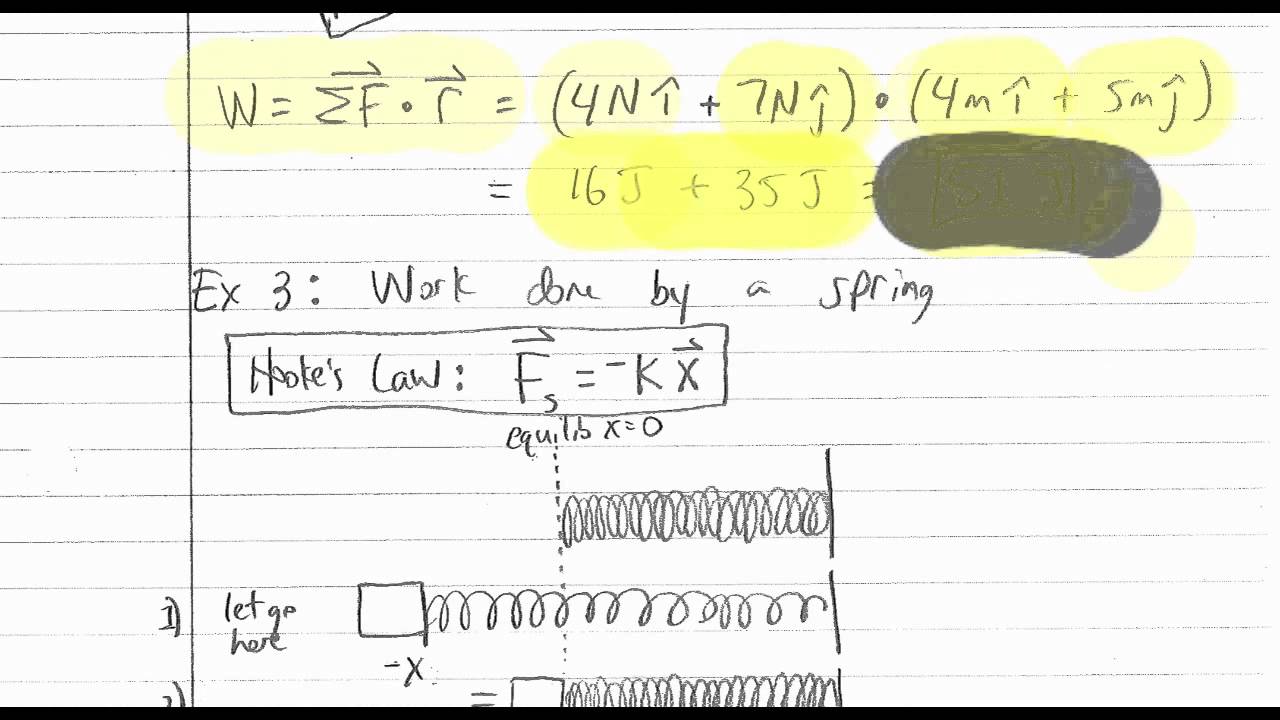 W = ΣF⃗ · r⃗ = (4N î + 7N ĵ) · (4m î + 5m ĵ)
= 16J + 35J = 51 J
Ex 3: Work done by a spring
Hooke's Law: F⃗s = -K x⃗
equilib x=0
1) let go
here
-x
2) =